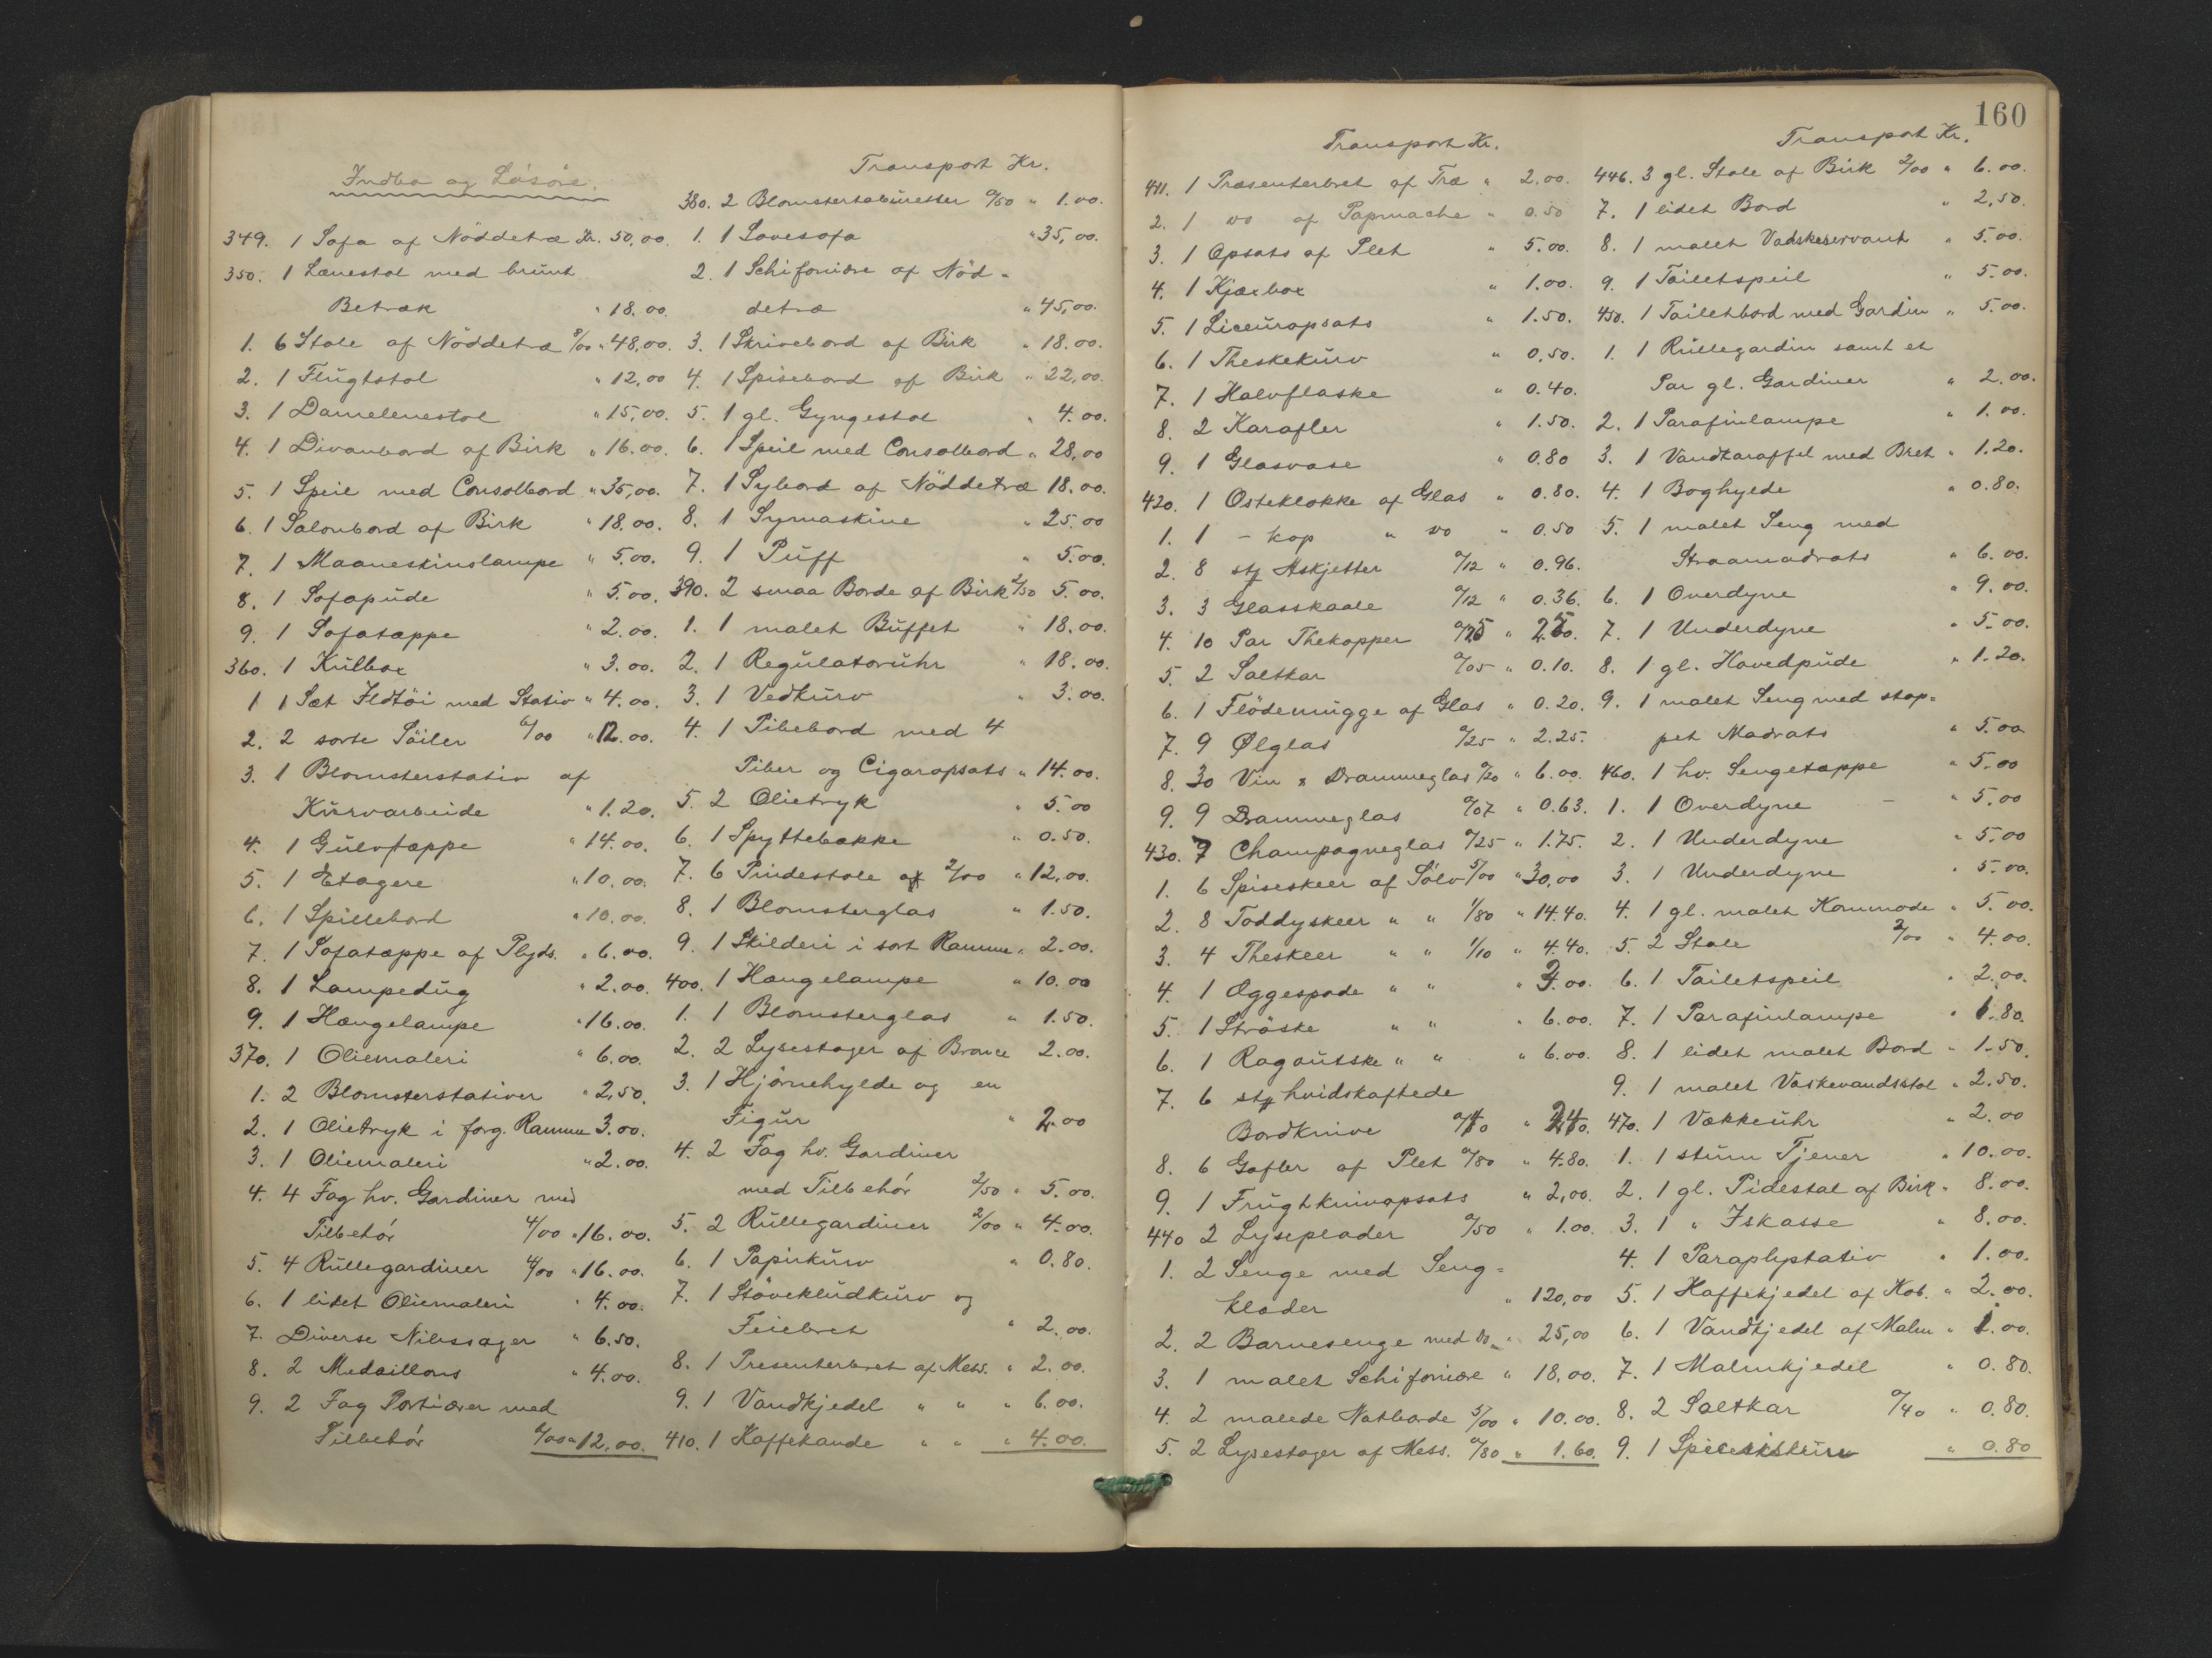 Indbo og Løsøre.
349. 1 Sofa af Nøddetræ Kr. 50,00.
350. 1 Lænestol med brunt
Betræk " 18.00.
1. 6 Stole af Nøddetræ 8/00 " 48,00.
2. 1 Flugtstol " 12,00
3. 1 Damelenestol " 15,00.
4. 1 Divanbord af Birk " 16.00.
5. 1 Speil med Consolbord " 35,00.
6. 1 Salonbord af Birk " 18.00.
7. 1 Maaneskinslampe " 5.00.
8. 1 Sofapude " 5.00.
9. 1 Sofatæppe " 2.00.
360. 1 Kulbox " 3.00.
1 1 Sæt Ildtøi med Stativ " 4.00.
2. 2 sorte Søiler 6/00 " 12.00.
3. 1 Blomsterstativ af
Kurvarbeide " 1.20.
4. 1 Gulvtæppe " 14.00.
5. 1 Etagere " 10.00.
6. 1 Spillebord " 10.00.
7. 1 Sofatæppe af Plyds. " 6.00.
8. 1 Lampedug " 2.00.
9. 1 Hængelampe " 16.00.
370. 1 Oliemaleri " 6.00.
1. 2 Blomsterstativer " 2,50.
2. 1 Olietryk i forg. Ramme 3.00.
3. 1 Oliemaleri " 2.00.
4. 4 Fag hv. Gardiner med
Tilbehør 4/00 " 16.00.
5. 4 Rullegardiner 4/00 " 16.00.
6. 1 lidet Oliemaleri " 4.00.
7. Diverse Nibssager " 6.50.
8. 2 Medaillons " 4.00.
9. 2 Fag Portiærer med
Tilbehør 6/00 " 12.00.
Transport Kr.
380. 2 Blomstertabouretter 0/50 " 1.00.
1. 1 Sovesofa " 35,00.
2. 1 Schifoniere af Nød-
detræ " 45,00.
3. 1 Skrivebord af Birk " 18.00.
4. 1 Spisebord af Birk " 22,00.
5. 1 gl. Gyngestol " 4.00.
6. 1 Speil med Consolbord " 28,00
7. 1 Sybord af Nøddetræ 18.00.
8. 1 Symaskine " 25.00
9. 1 Puff " 5.00.
390. 2 smaa Borde af Birk 2/50 5.00.
1. 1 malet Buffet " 18.00.
2. 1 Regulatoruhr " 18.00.
3. 1 Vedkurv " 3.00.
4. 1 Pibebord med 4
Piber og Cigaropsats " 14.00.
5. 2 Olietryk " 5.00
6. 1 Spyttebakke " 0.50.
7. 6 Pindestole af 2/00 " 12,00.
8. 1 Blomsterglas " 1.50.
9. 1 Skilderi i sort Ramme " 2.00.
400. 1 Hængelampe " 10.00
1. 1 Blomsterglas " 1.50.
2. 2 Lysestager af Bronce 2.00.
3. 1 Hjørnehylde og en
Figur " 2.00
4. 2 Fag hv. Gardiner
med Tilbehør 2/50 " 5.00.
5. 2 Rullegardiner 2/00 " 4.00.
6. 1 Papirkurv " 0.80.
7. 1 Støvekludkurv og
Feiebret " 2.00.
8. 1 Presenterbret af Mess. " 2.00.
9. 1 Vandkjedel " " " 6.00.
410. 1 Kaffekande " " " 4.00.
160
Transport Kr.
411. 1 Præsenterbret af Træ " 2.00.
2. 1 do af Papmache " 0.50
3. 1 Opsats af Plet " 5.00.
4. 1 Kjæxbox " 1.00.
5. 1 Liceuropsats " 1.50.
6. 1 Theskekurv " 0,50.
7. 1 Halvflaske " 0.40.
8. 2 Karafler " 1.50.
9. 1 Glasvase " 0.80
420. 1 Osteklokke af Glas " 0.80.
1. 1 - kop " do " 0.50
2. 8 stk Askjetter 0/12 " 0.96.
3. 3 Glasskaale 0/12 " 0.36.
4. 10 Par Thekopper 0/25 " 2.50.
5. 2 Saltkar 0/05 " 0.10.
6. 1 Flødemugge af Glas " 0.20.
7. 9 Ølglas 0/25 " 2.25.
8. 30 Vin & Drammeglas 0/20 " 6.00.
9. 9 Drammeglas 0/07 " 0.63.
430. 7 Champagneglas 0/25 " 1.75.
1. 6 Spiseskeer af Sølv 5/00 " 30,00
2. 8 Toddyskeer " " 1/80 " 14.40.
3. 4 Theskeer " " 1/10 " 4.40.
4. 1 Æggespade " " "
5. 1 Strøske " " " 6.00.
6. 1 Ragoutske " " " 6.00.
7. 6 stk hvidskaftede
Bordknive 0/40 " 2.40.
8. 6 Gafler af Plet 0/80 " 4.80.
9. 1 Frugtknivopsats " 2,00.
440 2 Lyseplader 0/50 " 1.00.
1. 2 Senge med Seng-
klæder " 120,00
2. 2 Barnesenge med do " 25,00
3. 1 malet Schifoniere " 18,00.
4. 2 malede Natborde 5/00 " 10.00.
5. 2 Lysestager af Mess. 0/80 " 1.60.
Transport Kr.
446. 3 gl. Stole af Birk 2/00 " 6.00.
7. 1 lidet Bord " 2,50.
8. 1 malet Vadskeservant " 5.00.
9. 1 Toiletspeil " 5.00.
450. 1 Toiletbord med Gardin " 5.00.
1. 1 Rullegardin samt et
Par gl. Gardiner " 2.00.
2. 1 Parafinlampe " 1.00.
3. 1 Vandkaraffel med Bret " 1.20.
4. 1 Boghylde " 0.80.
5. 1 malet Seng med
Straamadrats " 6.00.
6. 1 Overdyne " 9.00.
7. 1 Underdyne " 5.00.
8. 1 gl. Hovedpude " 1.20.
9. 1 malet Seng med stop-
pet Madrats " 5.00
460. 1 hv. Sengetæppe " 5.00
1. 1 Overdyne - " 5.00
2. 1 Underdyne " 5.00
3. 1 Underdyne " 5.00.
4. 1 gl. malet Kommode " 5.00.
5. 2 Stole 2/00 " 4.00.
6. 1 Toiletspeil " 2.00.
7. 1 Parafinlampe " 1.80.
8. 1 lidet malet Bord " 1.50.
9. 1 malet Vaskevandsstol " 2.50.
470. 1 Vækkeuhr " 2.00
1. 1 stum Tjener " 10.00.
2. 1 gl. Pidestal af Birk " 8.00.
3. 1 " Iskasse " 8.00.
4. 1 Paraplystativ " 1.00.
5. 1 Kaffekjedel af Kob. " 2.00.
6. 1 Vandkjedel af Malm " 1.00.
7. 1 Malmkjedel " 0.80.
8. 2 Saltkar 0/40 " 0.80.
9. 1 " 0.80